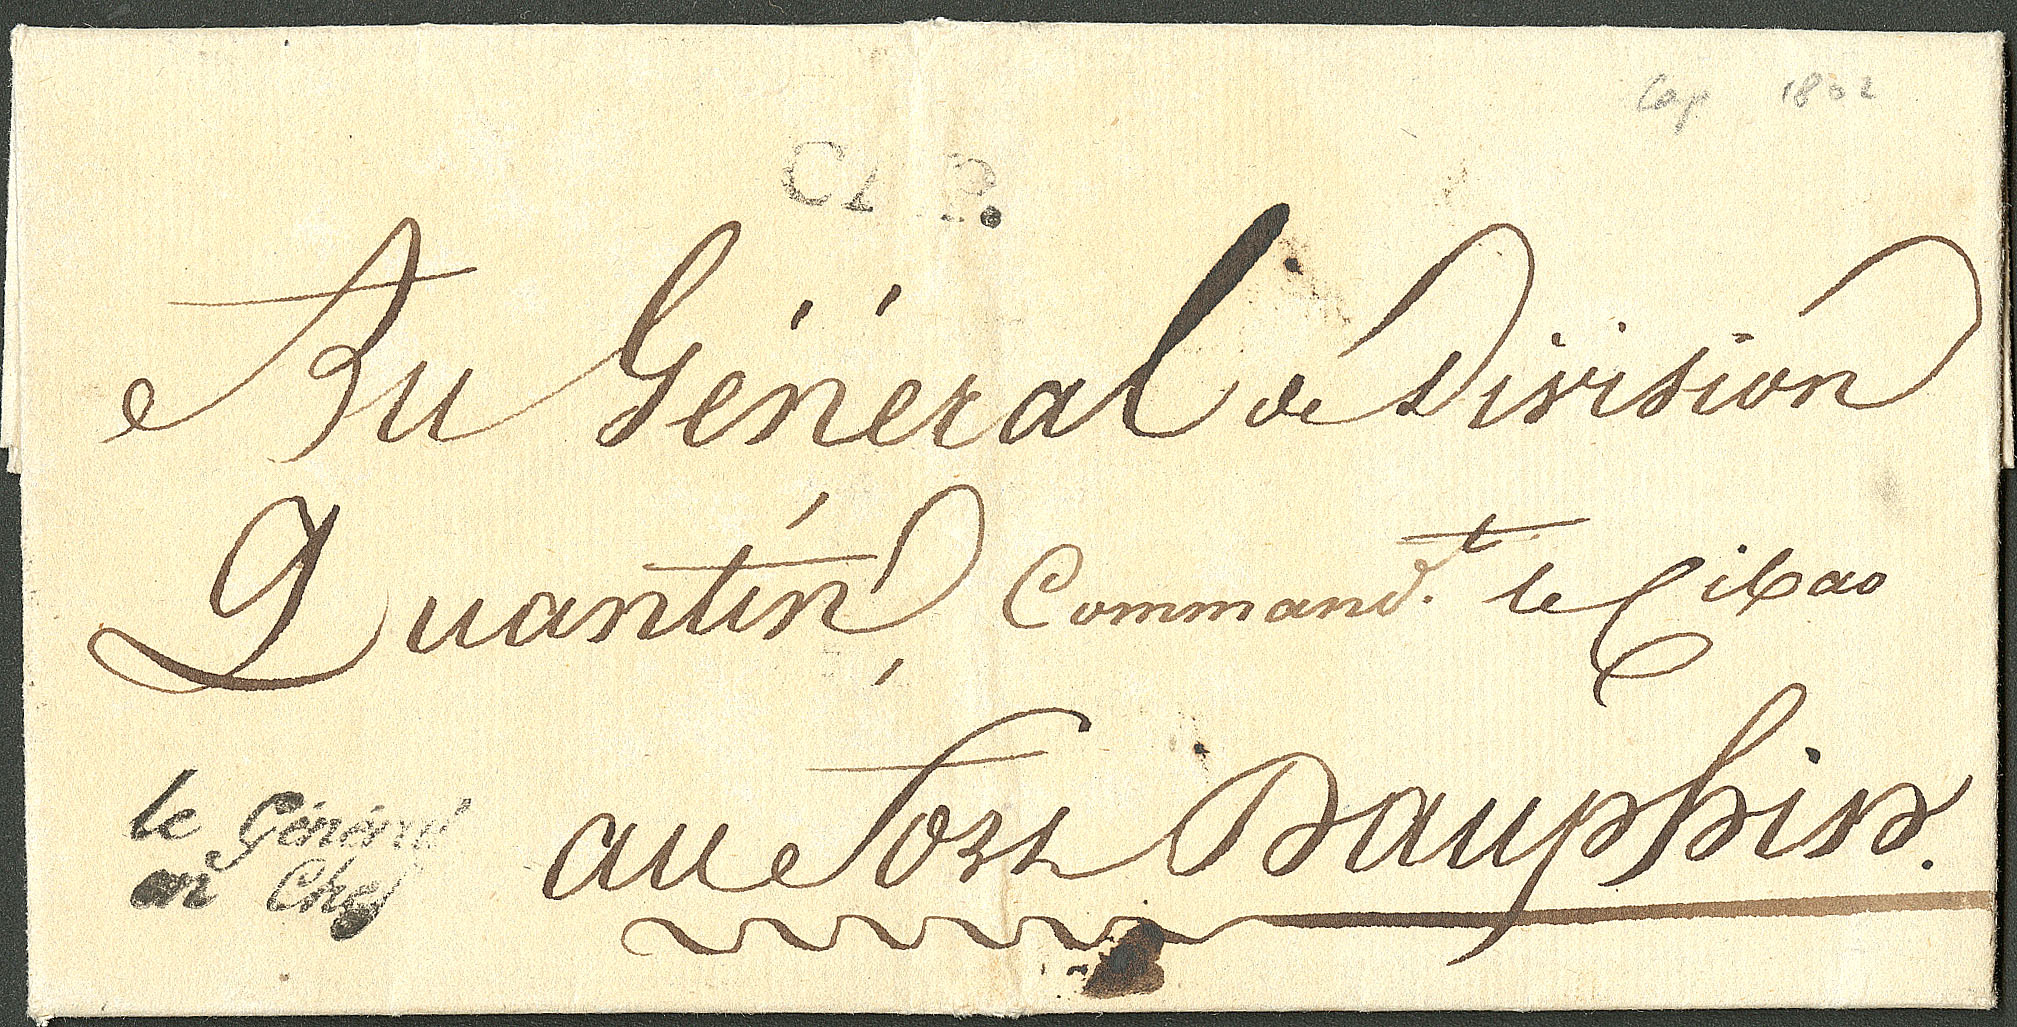 Cap 1802
CAP.
Au Général de Division
Quantin, Command.t le Cibao
au Fort Dauphin.
le Général
en Chef